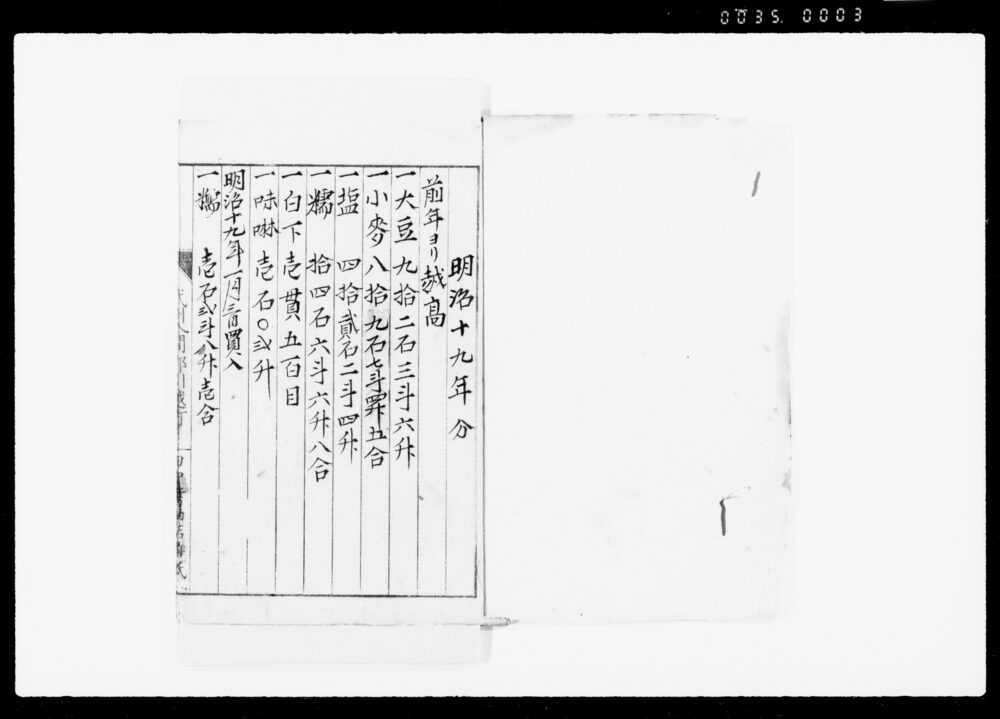 0035 0003
明治十九年分
前年ヨリ越高
一大豆 九拾二石三斗六升
一小麥 八拾九石七斗四升五合
一塩 四拾貳石二斗四升
一糯 拾四石六斗六升八合
一白下 壱貫五百目
一味啉 壱石〇弐升
明治十九年一月三日買入
一糯 壱石弐斗八升壱合